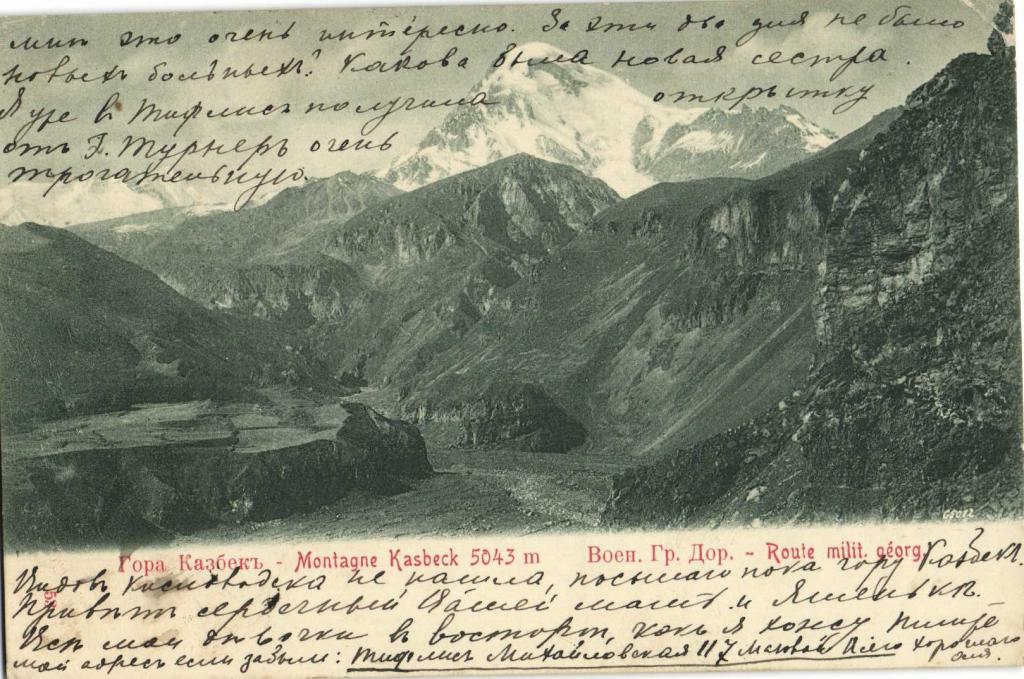 мнѣ это очень интересно. За эти два дня не было
новыхъ больныхъ? Какова была новая сестра.
Я уже в Тифлисѣ получила открытку
отъ Г. Турнеръ очень
трогательную.
65012
Гора Казбекъ - Montagne Kasbeck 5043 m Воен. Гр. Дор. - Route milit. géorg.
Видовъ Кисловодска не нашла, посылаю пока гору Казбекъ.
Привѣтъ сердечный Вашей мамѣ и
Всѣ мои дѣвочки в восторгѣ, какъ я хожу Пишите
мой адресъ если забыли: Тифлисъ Михайловская 117 Всего хорошаго